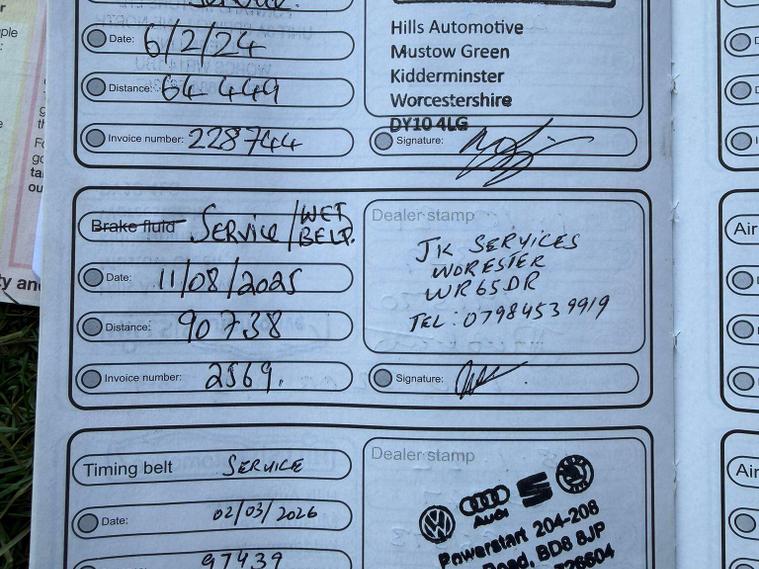 Service
Date: 6/2/24
Distance: 64 449
Invoice number: 228744
Hills Automotive
Mustow Green
Kidderminster
Worcestershire
DY10 4LG
Signature:
Brake fluid SERVICE / WET BELT.
Date: 11/08/2025
Distance: 90738
Invoice number: 2569.
Dealer stamp
JK SERVICES
WORESTER
WR65DR
TEL: 07984539919
Signature:
Timing belt SERVICE
Date: 02/03/2026
97439
Dealer stamp
Audi
Powerstart 204-208
Road, BD8 8JP
726604
Air
Air